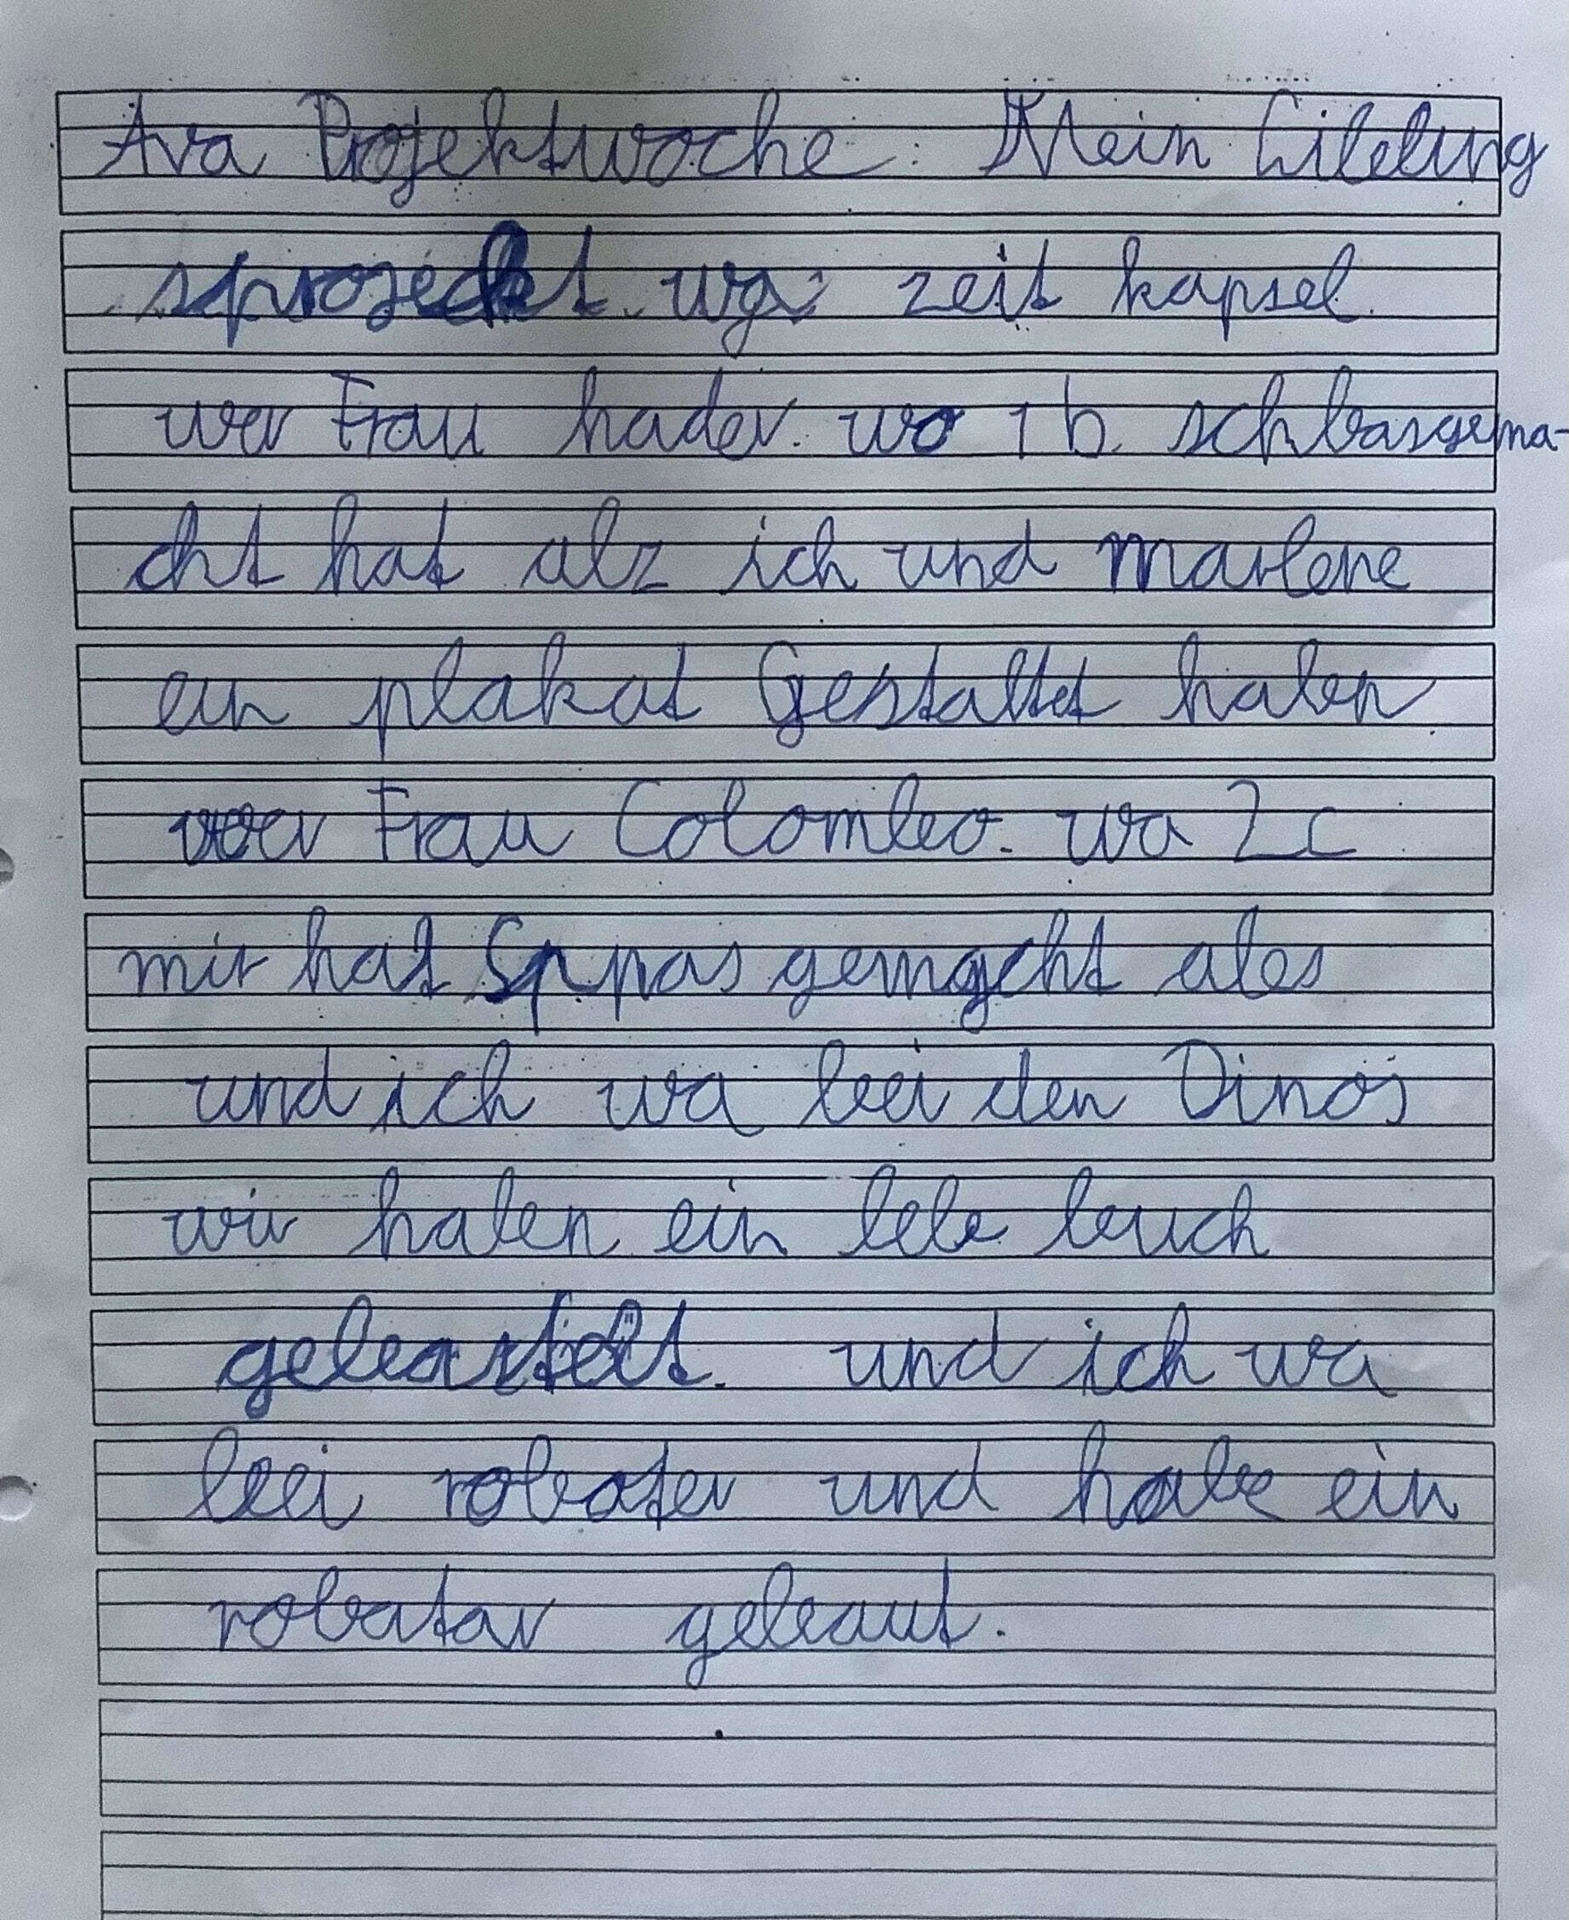 Ava Projektwoche: Mein Libling
sprojeckt wa zeit kapsel.
wer Frau hader. wo 1b. schbasgema-
cht hat alz ich und Marlene
ein plakat Gestaltet haben
wer Frau Colombo. wa 2c
mir hat Sppas gemacht ales
und ich wa bei den Dinos
wir haben ein lebe buch
gebastelt. und ich wa
bei roboter und habe ein
robatar gebaut.